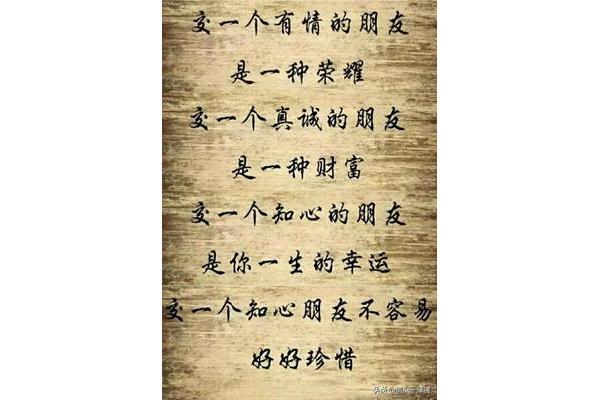 交一个有情的朋友
是一种荣耀
交一个真诚的朋友
是一种财富
交一个知心的朋友
是你一生的幸运
交一个知心朋友不容易
好好珍惜